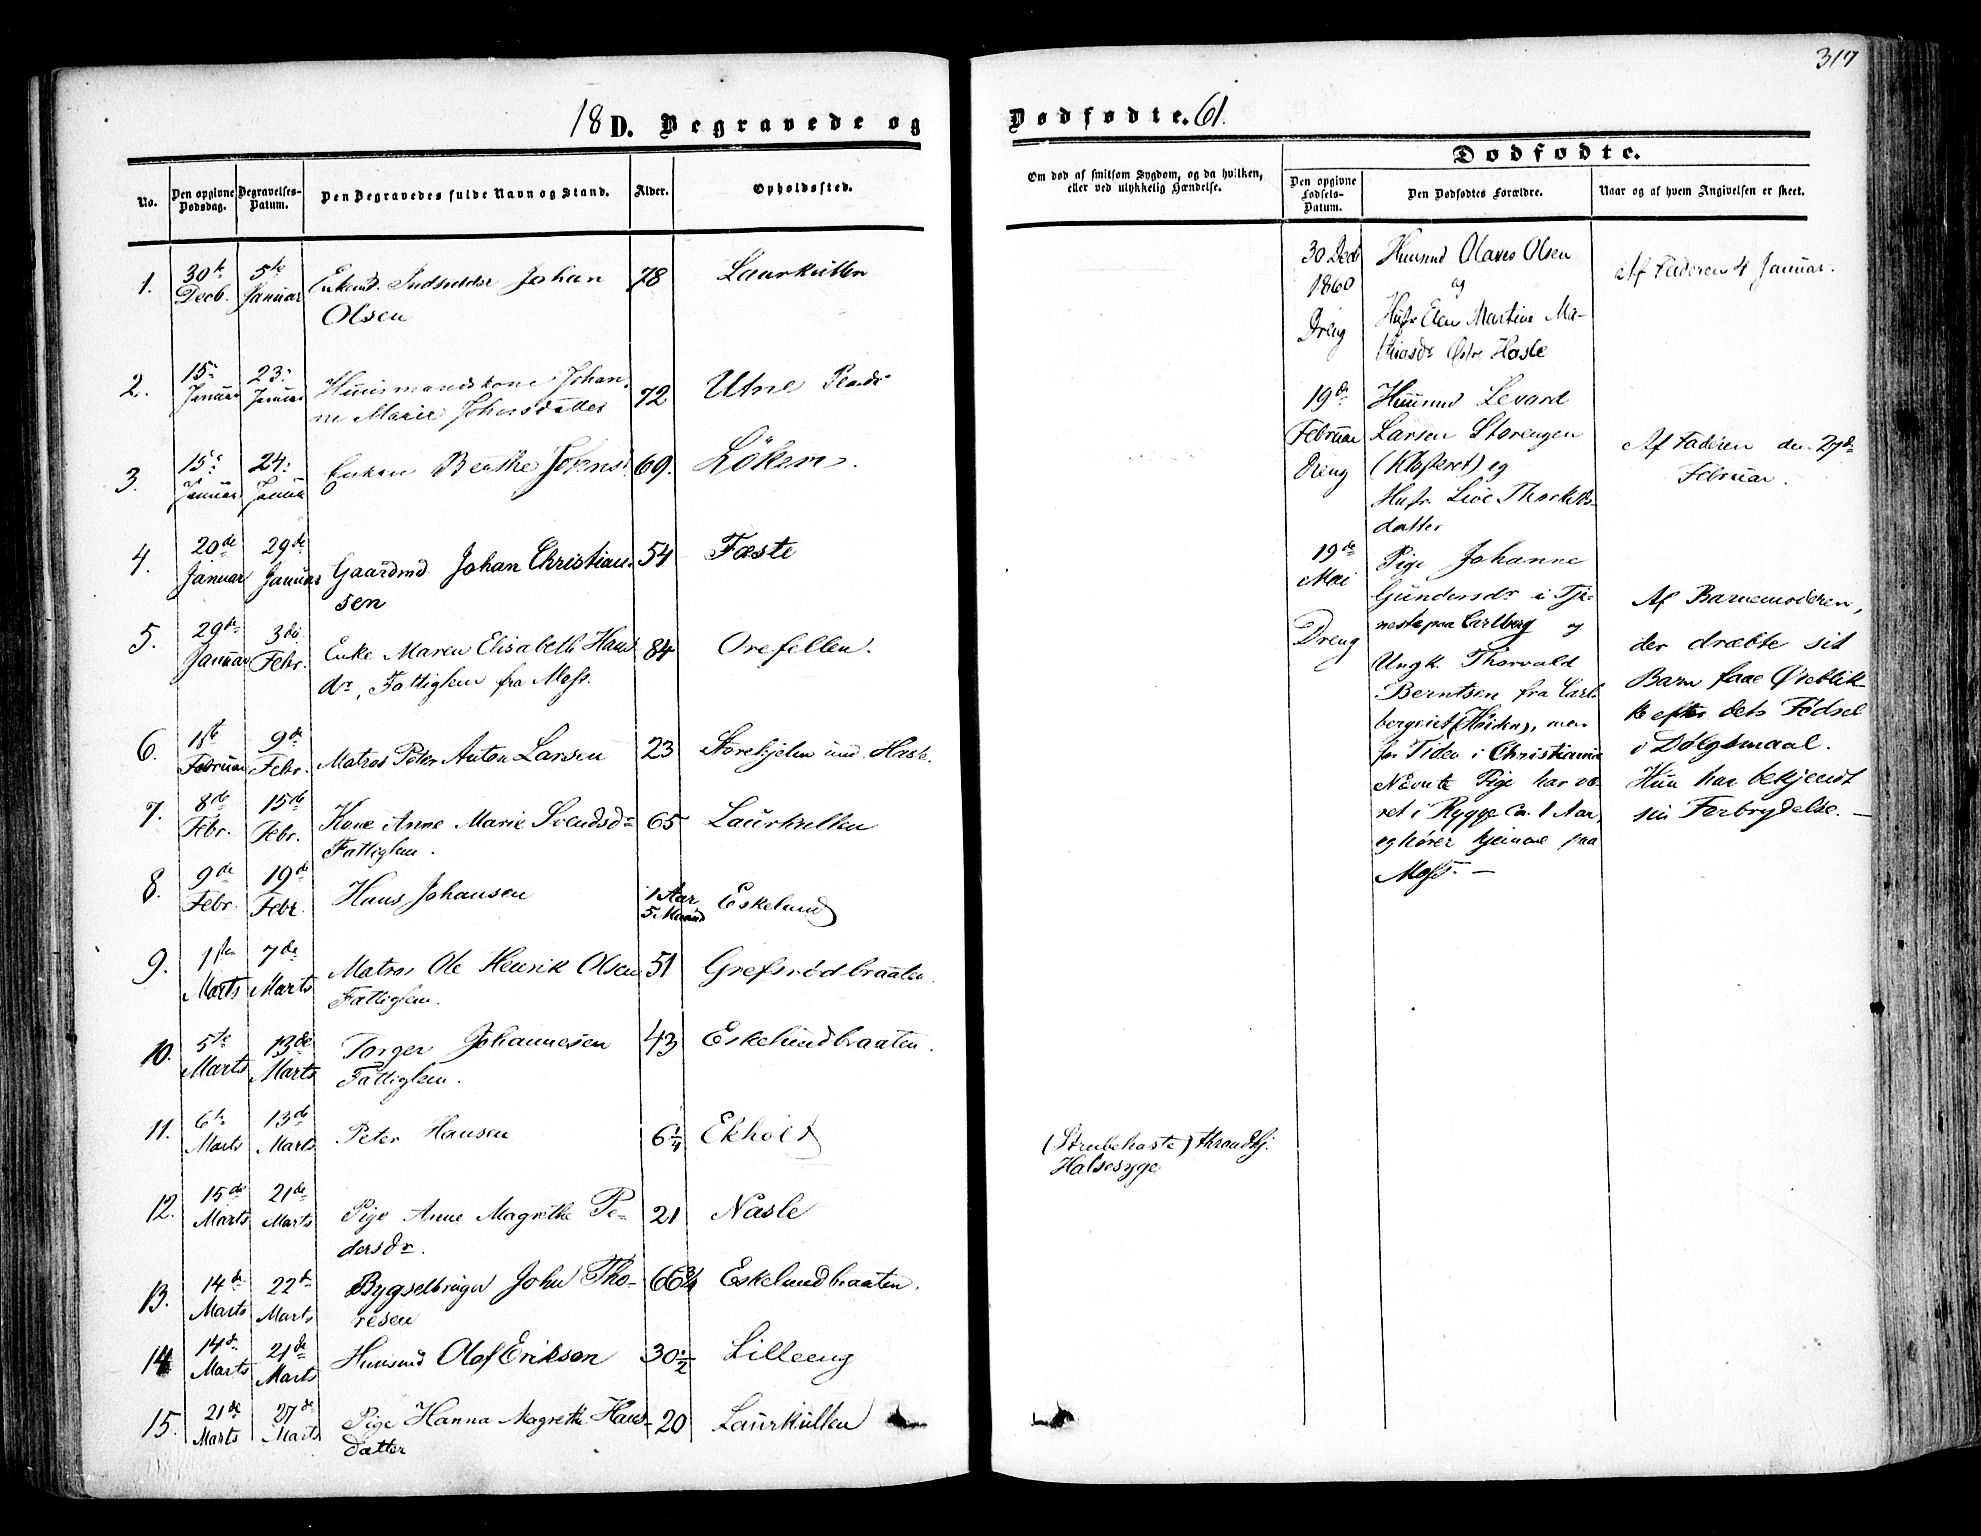 317
18 D. Begravede og
Dødfødte. 61.
No.
Den opgivne Dødsdag.
Begravelses-Datum.
Den Begravedes fulde Navn og Stand.
Alder.
Opholdssted.
1. 30te Decb. 5te Januar Enkemd. Indsidder Johan 78 Laurkullen
Olsen
2. 15de Januar 23. Januar Huusmandskone Johan- 72 Utne Plads
ne Marie Johansdatter
3. 15de Januar 24. Januar Enken Berthe Johnsd. 69. Löken.
4. 20de Januar 29de Januar Gaardmd Johan Christian- 54 Fæste
sen
5. 29de Januar 3die Febr. Enke Maren Elisabeth Hans 84 Orefellen.
dr, Fattiglem fra Moss.
6. 1ste Februar 9de Febr. Matros Peter Anton Larsen 23 Storehjelm und. Hasle.
7. 8de Febr. 15de Febr. Kone Anne Marie Svendsdr 65 Laurkullen
Fattiglem.
8. 9de Febr. 19de Febr. Hans Johansen 1 Aar 5 Maand Eskelund
9. 1ste Marts 7de Marts Matros Ole Henrik Olsen 51 Grefsrödbraaten.
Fattiglem.
10. 5te Marts 13de Marts Torger Johannesen 43 Eskelundbraaten.
Fattiglem.
11. 6te Marts 13de Marts Peter Hansen 6 1/4 Ekholt
12. 15de Marts 21de Marts Pige Anne Magrethe Pe- 21 Nasle
dersdr.
13. 14de Marts 22de Marts Bygselbruger John Tho- 66 3/4 Eskelundbraaten.
resen
14 14de Marts 21de Marts Huusmd Olof Erikson 30 1/2 Lilleeng
15. 21de Marts 27de Marts Pige Hanna Magrethe Hans- 20 Laurkullen
datter
Om død af smitsom Sygdom, og da hvilken,
eller ved ulykkelig Hændelse.
(Strubehoste)
Halsesyge
Dødfødte.
Den opgivne Fødsels-Datum.
Den Dødfødtes Forældre.
Naar og af hvem Angivelsen er skeet.
30 Decb
1860
Dreng
Huusmd Olaves Olsen
og
Hustr Elen Martine Ma-
thiasdr Østre Hasle
Af Faderen 4 Januar.
19de
Februar
Dreng
Huusmd Levard
Larsen Storengen
(Klosteret) og
Hustr Live Thorkilds-
datter
Af Faderen den 27de
Februar.
19de
Mai
Dreng
Pige Johanne
Gundersdr i Tje-
neste paa Carlberg og
Ungk. Thorvald
Berntsen fra Carl-
bergeiet (Höiden), nu
for Tiden i Christiania
Nævnte Pige har væ-
ret i Rygge ca. 1 Aar,
og hører hjemme paa
Moss. —
Af Barnemoderen,
der dræbte sit
Barn faae Øieblik-
ke efter dets Fødsel
i Dølgsmaal.
Hun har bekjendt
sin Forbrydelse. —